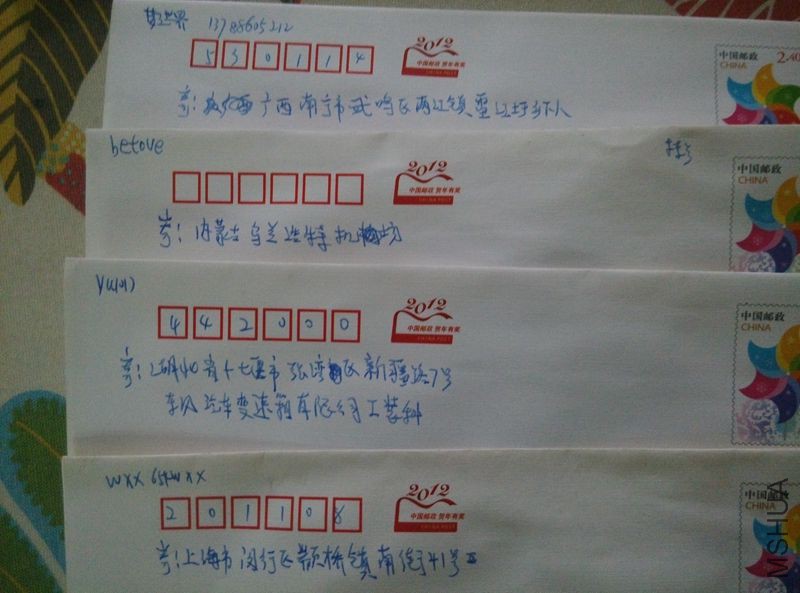 13788605212
530114
2012
中国邮政 贺年有奖
CHINA POST
中国邮政
CHINA
2.40
寄: 广西南宁市武鸣区两江镇
betove
挂号
2012
中国邮政 贺年有奖
CHINA POST
中国邮政
CHINA
寄: 内蒙古乌兰浩特机场
yu101
442000
2012
中国邮政 贺年有奖
CHINA POST
中国邮政
CHINA
寄: 湖北省十堰市张湾区新疆路7号
东风汽车变速箱有限公司工艺科
wxx
201108
2012
中国邮政 贺年有奖
CHINA POST
中国邮政
CHINA
寄: 上海市闵行区颛桥镇南街41号
MSHUA